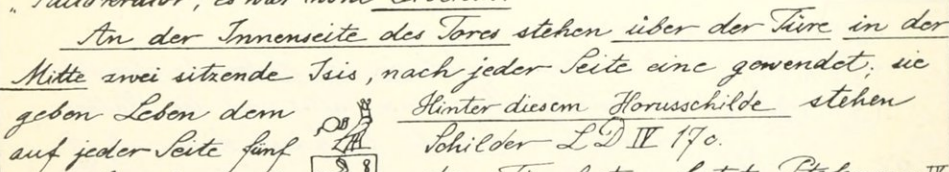 An der Innenseite des Tores stehen über der Türe in der
Mitte zwei sitzende Isis, nach jeder Seite eine gewendet; sie
geben Leben dem Hinter diesem Horusschilde stehen
auf jeder Seite fünf Schilder LD IV 170.